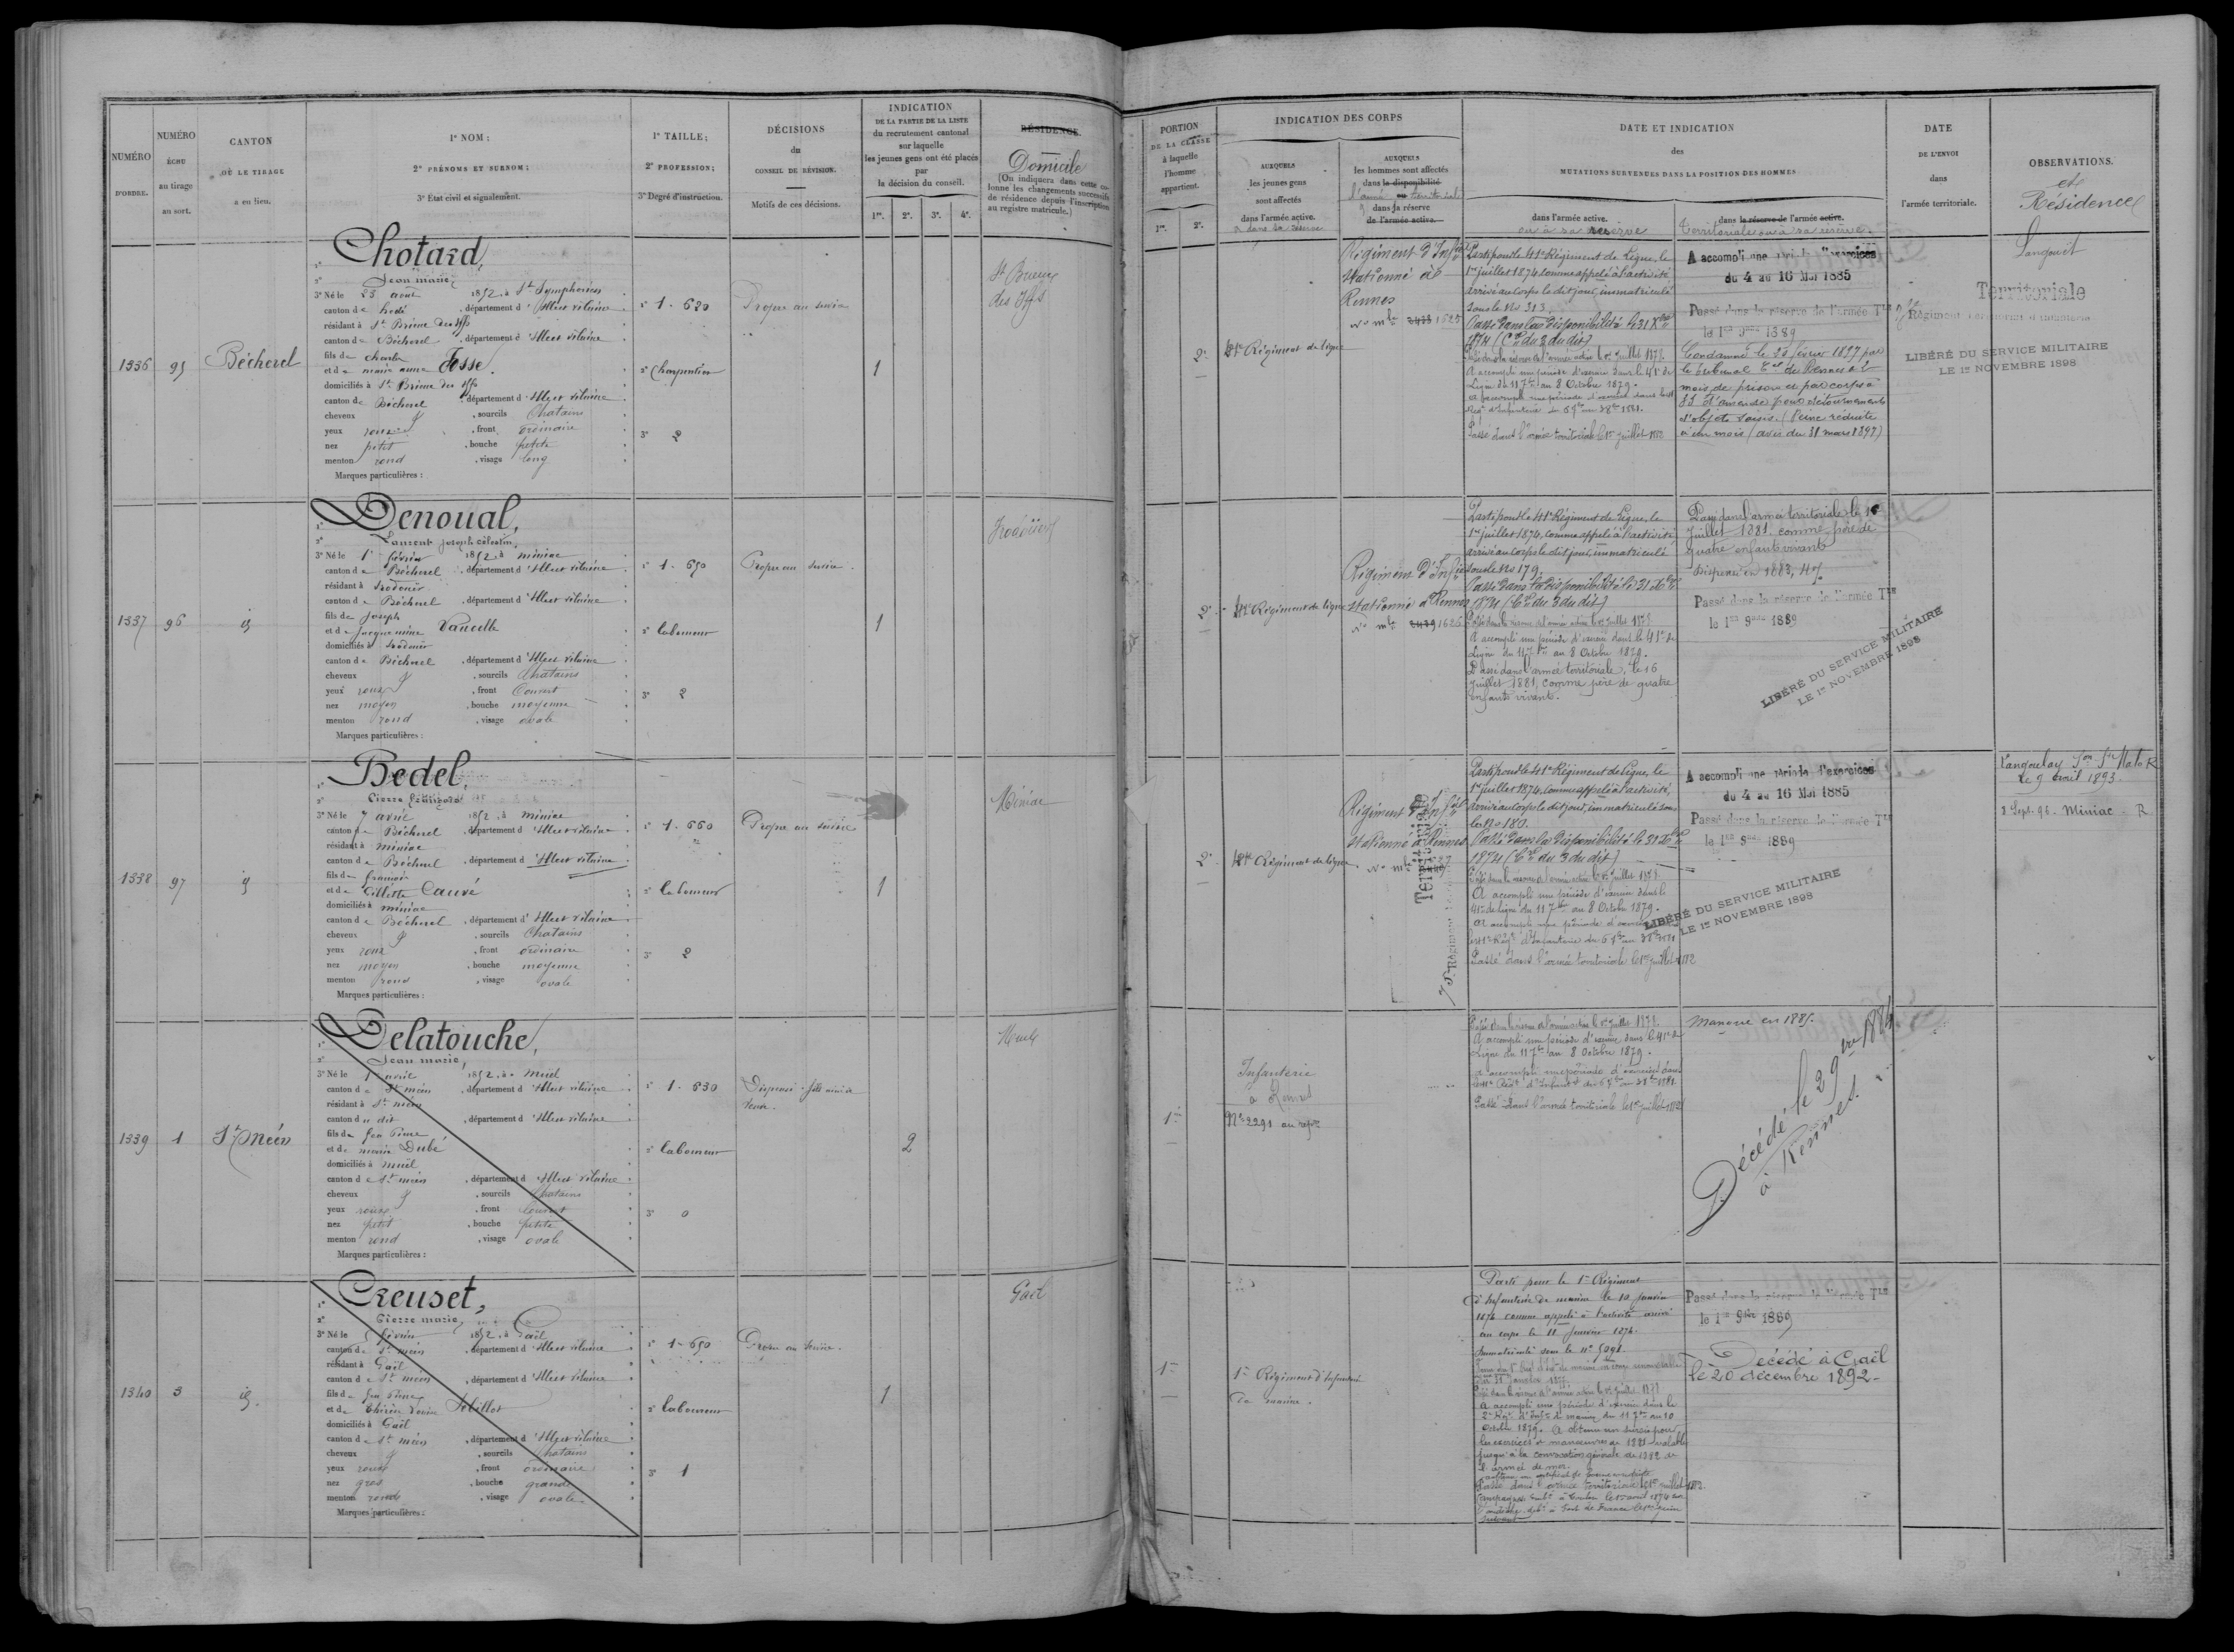 NUMÉRO
D'ORDRE.
NUMÉRO
ÉCHU
au tirage
au sort.
CANTON
OÙ LE TIRAGE
a eu lieu.
1º NOM;
2º PRÉNOMS ET SURNOM;
3º État civil et signalement.
1º TAILLE;
2º PROFESSION;
3º Degré d'instruction.
DÉCISIONS
du
CONSEIL DE RÉVISION.
Motifs de ces décisions.
INDICATION
DE LA PARTIE DE LA LISTE
du recrutement cantonal
sur laquelle
les jeunes gens ont été placés
par
la décision du conseil.
1re. 2e. 3e. 4e.
RÉSIDENCE.
Domicile
(On indiquera dans cette colonne
les changements successifs
de résidence depuis l'inscription
au registre matricule.)
PORTION
DE LA CLASSE
à laquelle
l'homme
appartient.
1re. 2e.
INDICATION DES CORPS
AUXQUELS
les jeunes gens
sont affectés
dans l'armée active.
& dans sa réserve
AUXQUELS
les hommes sont affectés
dans la disponibilité
ou
l'armée territoriale
& dans sa réserve
de l'armée active.
DATE ET INDICATION
des
MUTATIONS SURVENUES DANS LA POSITION DES HOMMES
dans l'armée active.
ou à sa réserve
dans la réserve de l'armée active.
Territoriale ou à sa réserve.
DATE
DE L'ENVOI
dans
l'armée territoriale.
OBSERVATIONS.
et
Résidence
1336
95
Bécherel
1º Chotard,
2º Jean marie,
3º Né le 23 août 1852, à St Symphorien
canton de hédé, département d'Ille et vilaine
résidant à St Brieuc des iffs
canton de Bécherel, département d'Ille et vilaine
fils de charles
et de marie anne Fosse.
domiciliés à St Brieuc des iffs
canton de Bécherel, département d'Ille et vilaine
cheveux, sourcils Chatains
yeux roux, front ordinaire
nez petit, bouche petite
menton rond, visage long
Marques particulières :
1º 1.620
2º Charpentier
3º 2
Propre au service
1
St Brieuc
des Iffs
2e
41e Régiment de ligne
Régiment d'Infrie
stationné à
Rennes
No mle 1625
Parti pour le 41e Régiment de Ligne, le
1er juillet 1874, comme appelé à l'activité
arrivé au corps le dit jour, immatriculé
sous le No 313.
Passé dans la disponibilité le 31 Xbre
1874 (Cre du 3 du dit)
Passé dans la réserve de l'armée active le 1er juillet 1878.
A accompli une période d'exercice dans le 41e de
Ligne du 11 7bre au 8 Octobre 1879.
Passé dans l'armée territoriale le 1er juillet 1882
A accompli une période d'exercices
du 4 au 16 Mai 1885
Passé dans la réserve de l'armée Tle
le 1er 9bre 1889
Condamné le 26 février 1897 par
le tribunal Cel de Rennes à 2
mois de prison et par corps à
d'amende pour détournement
d'objets saisis. (Peine réduite
à un mois (avis du 31 mars 1897)
Territoriale
Régiment territorial d'infanterie
LIBÉRÉ DU SERVICE MILITAIRE
LE 1er NOVEMBRE 1898
Langouet
1337
96
id
1º Denoual,
2º Laurent joseph célestin,
3º Né le 1er février 1852, à miniac
canton de Bécherel, département d'Ille et vilaine
résidant à irodouër
canton de Bécherel, département d'Ille et vilaine
fils de joseph
et de jacquemine Vauvelle
domiciliés à irodouër
canton de Bécherel, département d'Ille et vilaine
cheveux, sourcils Chatains
yeux roux, front Couvert
nez moyen, bouche moyenne
menton rond, visage ovale
Marques particulières :
1º 1.650
2º laboureur
3º 2
Propre au service.
1
Irodouër
2e
41e Régiment de ligne
Régiment d'Infrie
stationné à Rennes
No mle 1626
Parti pour le 41e Régiment de Ligne, le
1er juillet 1874, comme appelé à l'activité
arrivé au corps le dit jour, immatriculé
sous le No 179.
Passé dans la disponibilité le 31 Xbre
1874 (Cre du 3 du dit)
Passé dans la réserve de l'armée active le 1er juillet 1878
A accompli une période d'exercice dans le 41e de
Ligne du 11 7bre au 8 Octobre 1879.
Passé dans l'armée territoriale, le 16
Juillet 1881, comme père de quatre
enfants vivants.
Passé dans l'armée territoriale le 16
Juillet 1881, comme père de
quatre enfants vivants
Dispensé en 1883,
Passé dans la réserve de l'armée Tle
le 1er 9bre 1889
LIBÉRÉ DU SERVICE MILITAIRE
LE 1er NOVEMBRE 1898
1338
97
id
1º Bedel,
2º Pierre françois
3º Né le 7 avril 1852, à miniac
canton de Bécherel, département d'Ille et vilaine
résidant à miniac
canton de Bécherel, département d'Ille et vilaine
fils de françois
et de Cillette Cauvé
domiciliés à miniac
canton de Bécherel, département d'Ille et vilaine
cheveux, sourcils Chatains
yeux roux, front ordinaire
nez moyen, bouche moyenne
menton rond, visage ovale
Marques particulières :
1º 1.660
2º laboureur
3º 2
Propre au service
1
Miniac
2e
41e Régiment de ligne
Régiment d'Infrie
stationné à Rennes
No mle
Territoriale
75e Régiment
Parti pour le 41e Régiment de Ligne, le
1er juillet 1874, comme appelé à l'activité,
arrivé au corps le dit jour, immatriculé sous
le No 180.
Passé dans la disponibilité le 31 Xbre
1874 (Cre du 3 du dit)
Passé dans la réserve de l'armée active le 1er juillet 1878
A accompli une période d'exercice dans le
41e de Ligne du 11 7bre au 8 Octobre 1879.
A accompli une période d'exercices
Passé dans l'armée territoriale le 1er juillet 1882
A accompli une période d'exercices
du 4 au 16 Mai 1885
Passé dans la réserve de l'armée Tle
le 1er 9bre 1889
LIBÉRÉ DU SERVICE MILITAIRE
LE 1er NOVEMBRE 1898
le 9 avril 1893
3 Sept. 96 - Miniac - R
1339
1
St Méen
1º Delatouche,
2º Jean marie,
3º Né le avril 1852, à Muel
canton de St méen, département d'Ille et vilaine
résidant à St méen
canton du dit, département d'Ille et vilaine
fils de feu Pierre
et de marie Dubé
domiciliés à muël
canton de St méen, département d'Ille et vilaine
cheveux, sourcils Chatains
yeux roux, front Couvert
nez petit, bouche petite
menton rond, visage ovale
Marques particulières :
1º 1.630
2º laboureur
3º 0
Dispensé - fils ainé de
Veuve.
2
Muel
1re
Infanterie
à Rennes
No 2291 au
Passé dans la réserve de l'armée active le 1er juillet 1878.
A accompli une période d'exercice dans le 41e de
Ligne du 11 7bre au 8 Octobre 1879.
Passé dans l'armée territoriale le 1er juillet 1882
Manqué en 1885.
Décédé le 29 1884
à Rennes.
1340
3
id.
1º Creuset,
2º Pierre marie,
3º Né le 5 février 1852, à Gaël
canton de St méen, département d'Ille et vilaine
résidant à Gaël
canton de St méen, département d'Ille et vilaine
fils de feu Pierre
domiciliés à Gaël
canton de St méen, département d'Ille et vilaine
cheveux, sourcils Chatains
yeux roux, front ordinaire
nez gros, bouche grande
menton rond, visage ovale
Marques particulières :
1º 1.650
2º laboureur
3º 1
Propre au service.
1
Gaël
1re
1er Régiment d'Infanterie
de marine.
Parti pour le 1er Régiment
d'Infanterie de marine le 10 janvier
1874 comme appelé à l'activité arrivé
au corps le 11 janvier 1874.
Immatriculé sous le No 5091.
Passé dans la réserve de l'armée active le 1er juillet 1878
A accompli une période d'exercice dans le
2e Regt d'Infie de marine du 11 7bre au 10
Octobre 1879. A obtenu un sursis pour
les exercices et manœuvres de 1881 valable
jusqu'à la convocation générale de 1882 de
l'armée de mer.
Passé dans l'armée territoriale le 1er juillet 1882.
Passé dans la réserve de l'armée Tle
le 1er 9bre 1889
Décédé à Gaël
le 20 décembre 1892-